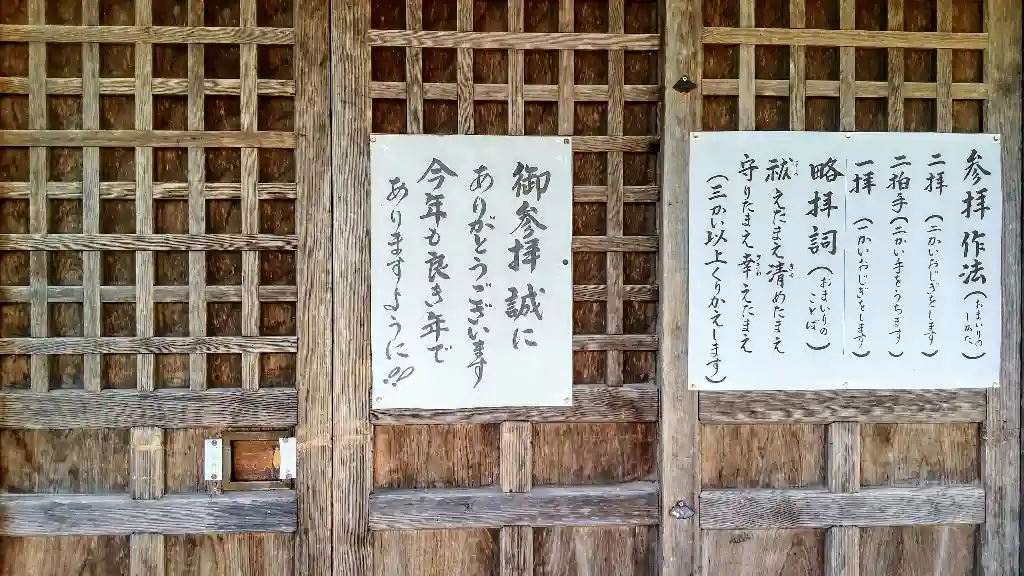 御参拝誠に
ありがとうございます
今年も良き年で
ありますように!!
参拝作法(おまいりのしかた)
二拝(二かいおじぎをします)
二拍手(二かい手をうちます)
一拝(一かいおじぎをします)
略拝詞(おまいりのことば)
祓えたまえ清めたまえ
守りたまえ幸えたまえ
(三かい以上くりかえします)